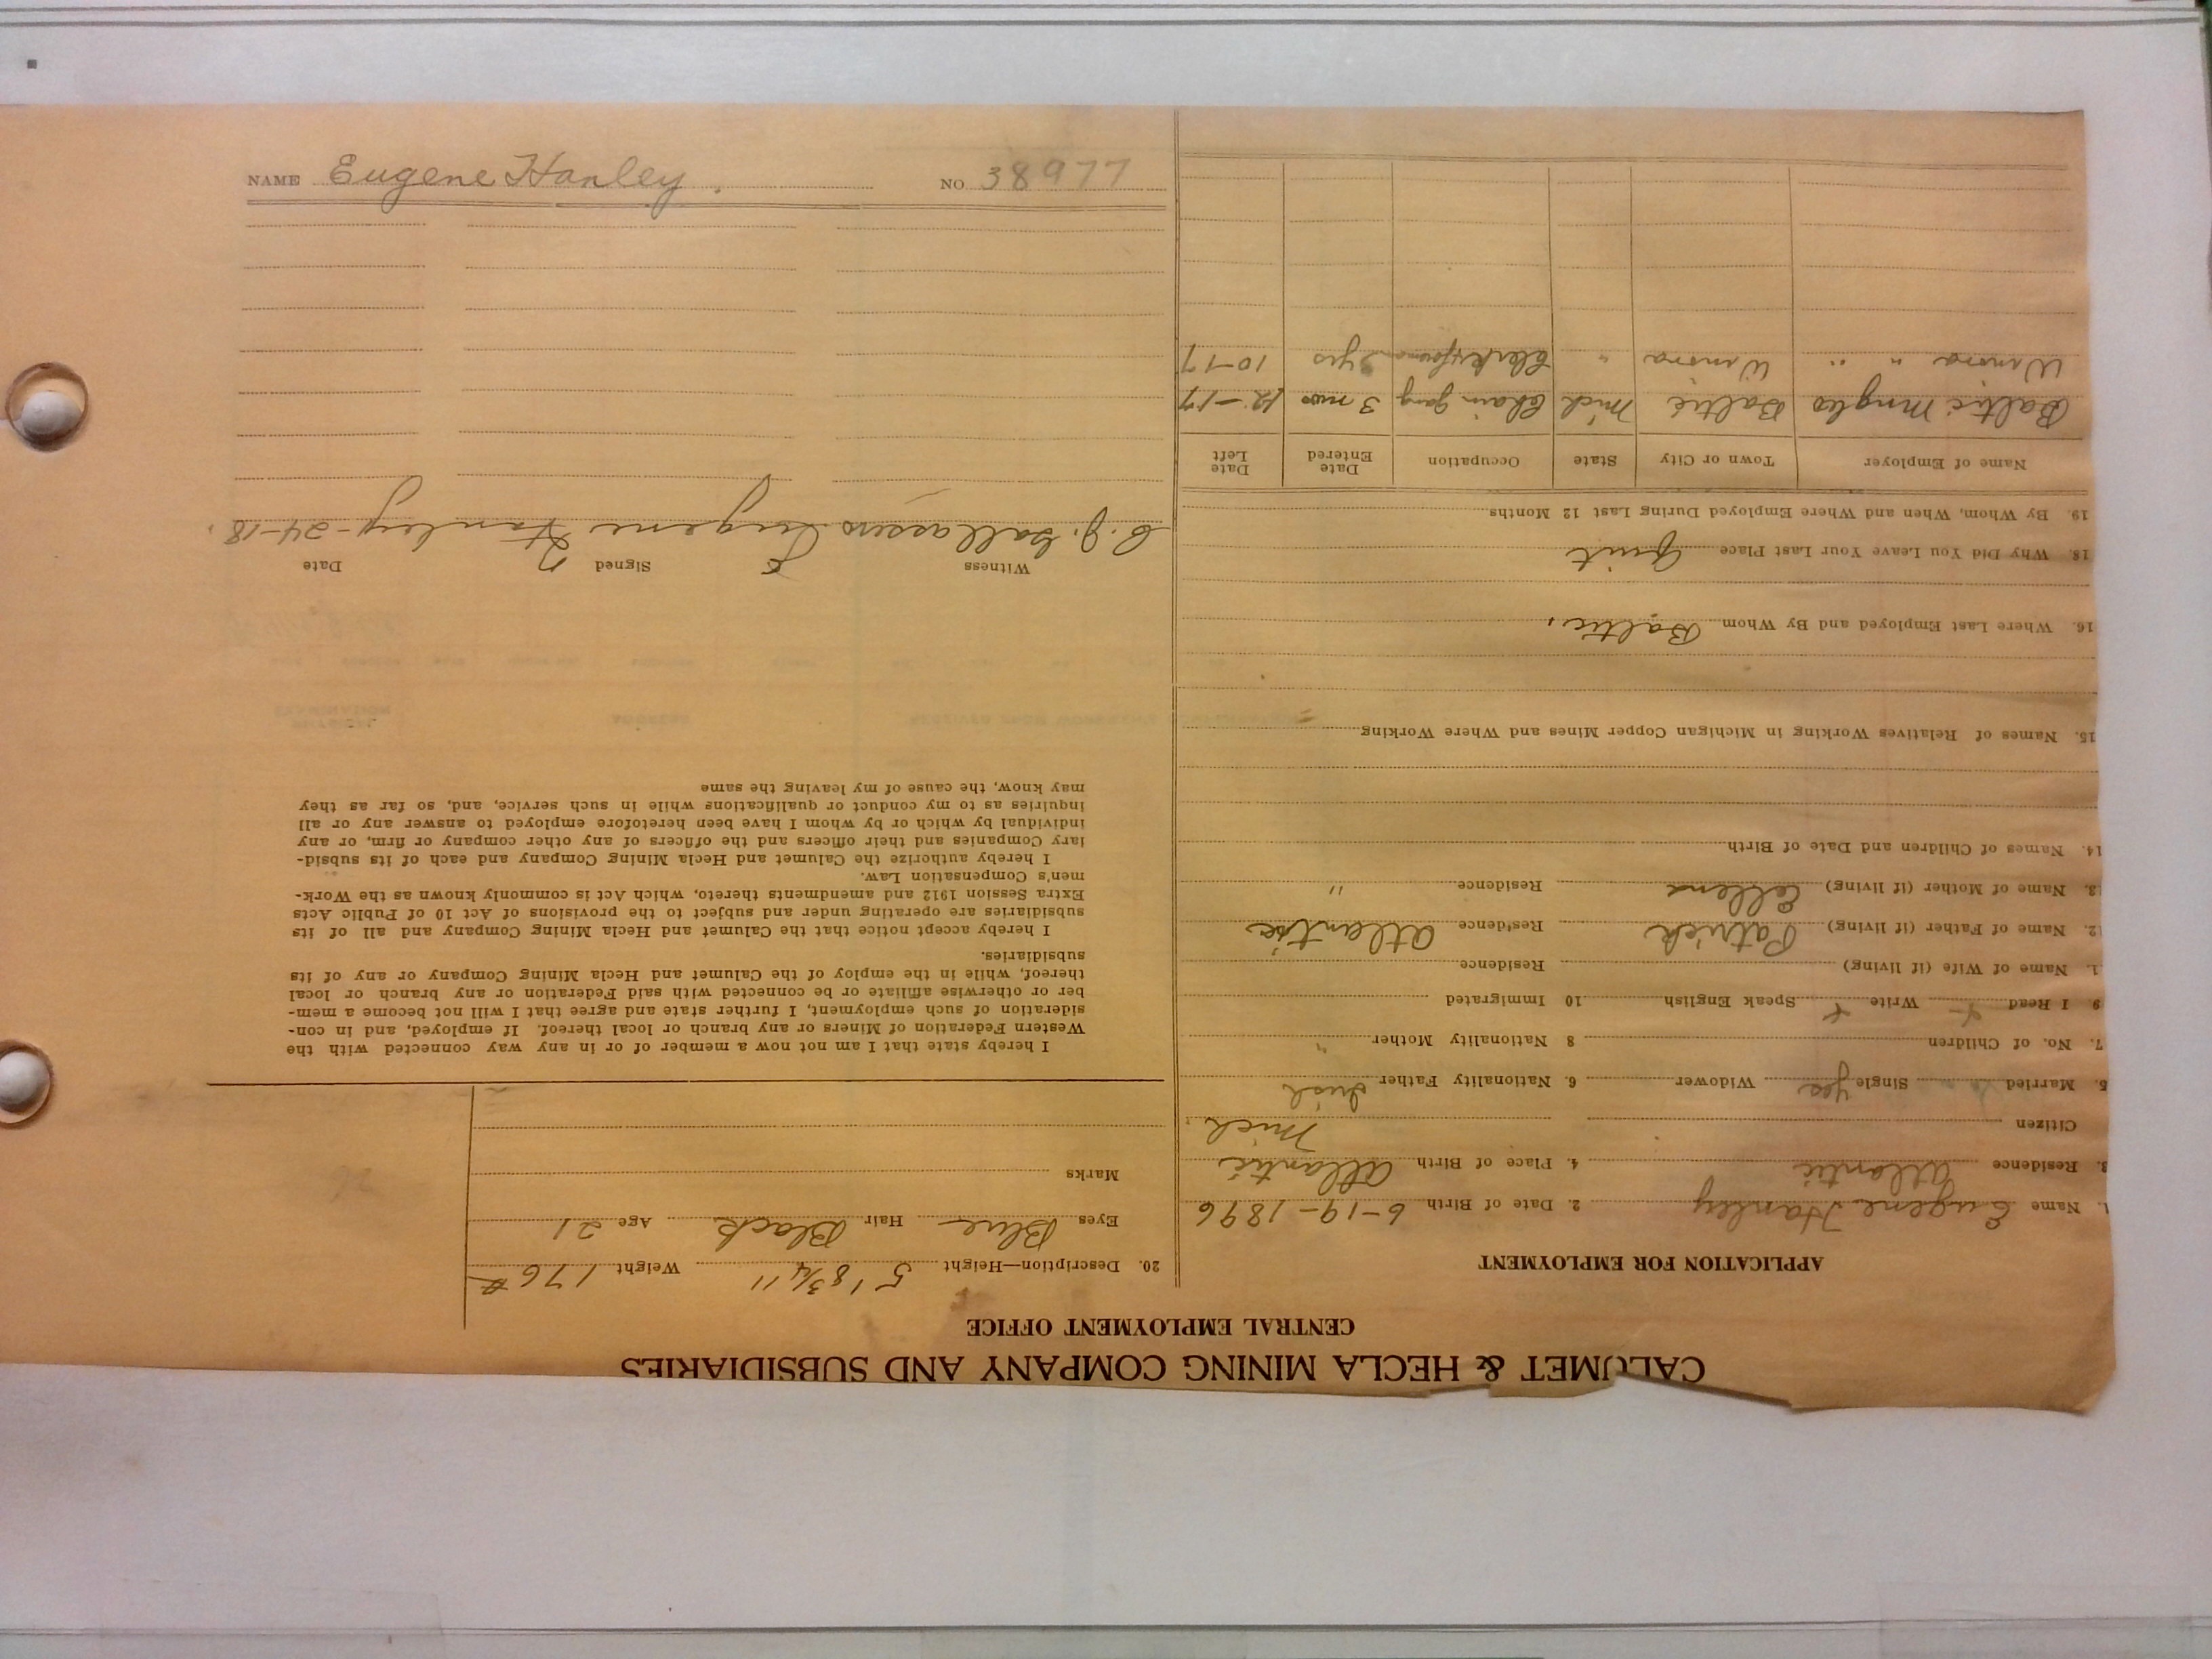 CALUMET & HECLA MINING COMPANY AND SUBSIDIARIES
CENTRAL EMPLOYMENT OFFICE
APPLICATION FOR EMPLOYMENT
1. Name Eugene Hanley 2. Date of Birth 6-19-1896
3. Residence Atlantic 4. Place of Birth Atlantic
Citizen Mich
5. Married Single yes Widower 6. Nationality Father Irish
7. No. of Children 8 Nationality Mother "
9 I Read Write Speak English 10 Immigrated
1. Name of Wife (if living) Residence
12. Name of Father (if living) Patrick Residence Atlantic
3. Name of Mother (if living) Ellen Residence "
14. Names of Children and Date of Birth
15. Names of Relatives Working in Michigan Copper Mines and Where Working
16. Where Last Employed and By Whom Baltic.
18. Why Did You Leave Your Last Place Quit
19. By Whom, When and Where Employed During Last 12 Months
Name of Employer Town or City State Occupation Date Entered Date Left
Baltic Mng Co Baltic Mich Chain gang 3 mos 12-17
Winona " " Winona " Clerk 10-17
20. Description—Height 5' 8 3/4" Weight 176#
Eyes Blue Hair Black Age 21
Marks
I hereby state that I am not now a member of or in any way connected with the
Western Federation of Miners or any branch or local thereof. If employed, and in con-
sideration of such employment, I further state and agree that I will not become a mem-
ber or otherwise affiliate or be connected with said Federation or any branch or local
thereof, while in the employ of the Calumet and Hecla Mining Company or any of its
subsidiaries.
I hereby accept notice that the Calumet and Hecla Mining Company and all of its
subsidiaries are operating under and subject to the provisions of Act 10 of Public Acts
Extra Session 1912 and amendments thereto, which Act is commonly known as the Work-
men's Compensation Law.
I hereby authorize the Calumet and Hecla Mining Company and each of its subsid-
iary Companies and their officers and the officers of any other company or firm, or any
individual by which or by whom I have been heretofore employed to answer any or all
inquiries as to my conduct or qualifications while in such service, and, so far as they
may know, the cause of my leaving the same
Witness Signed Date
Eugene Hanley -24-18.
NAME Eugene Hanley. NO. 38977